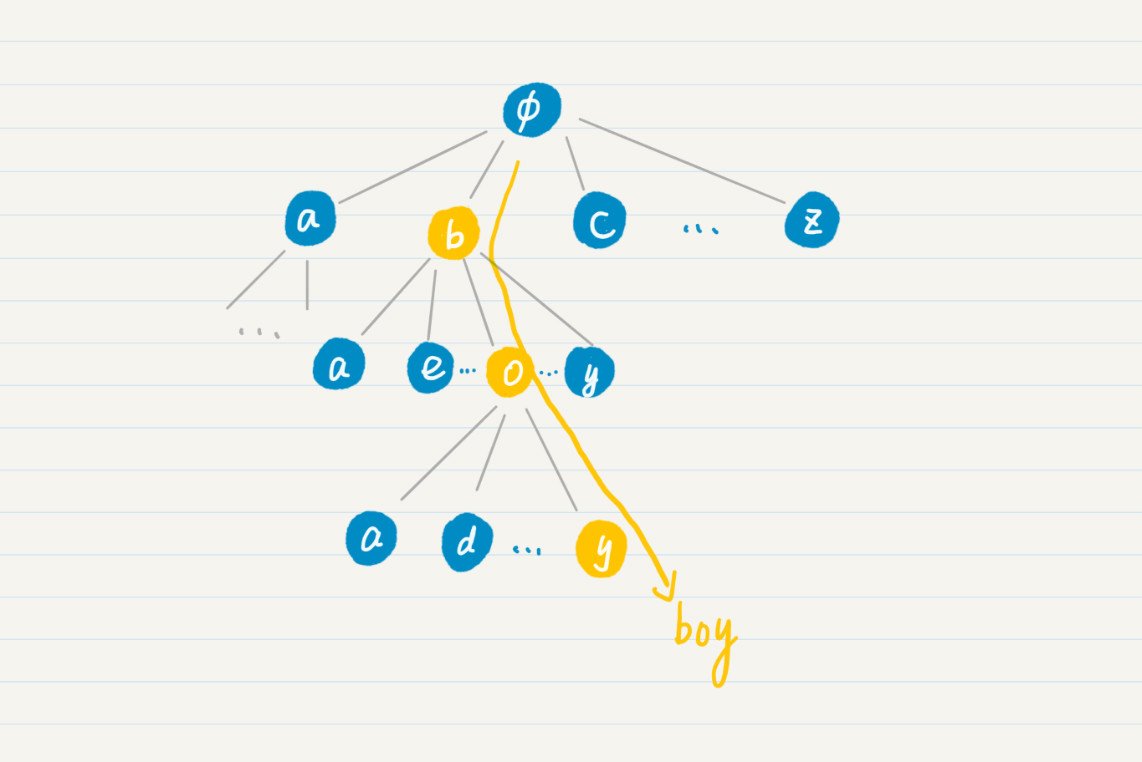 ϕ
a b c ... z
... a e ... o ... y
a d ... y
boy